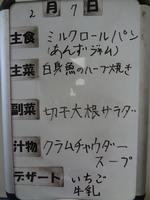 2月7日
主食 ミルクロールパン
(あんずジャム)
主菜 白身魚のハーブ焼き
副菜 切干大根サラダ
汁物 クラムチャウダー
スープ
デザート いちご
牛乳